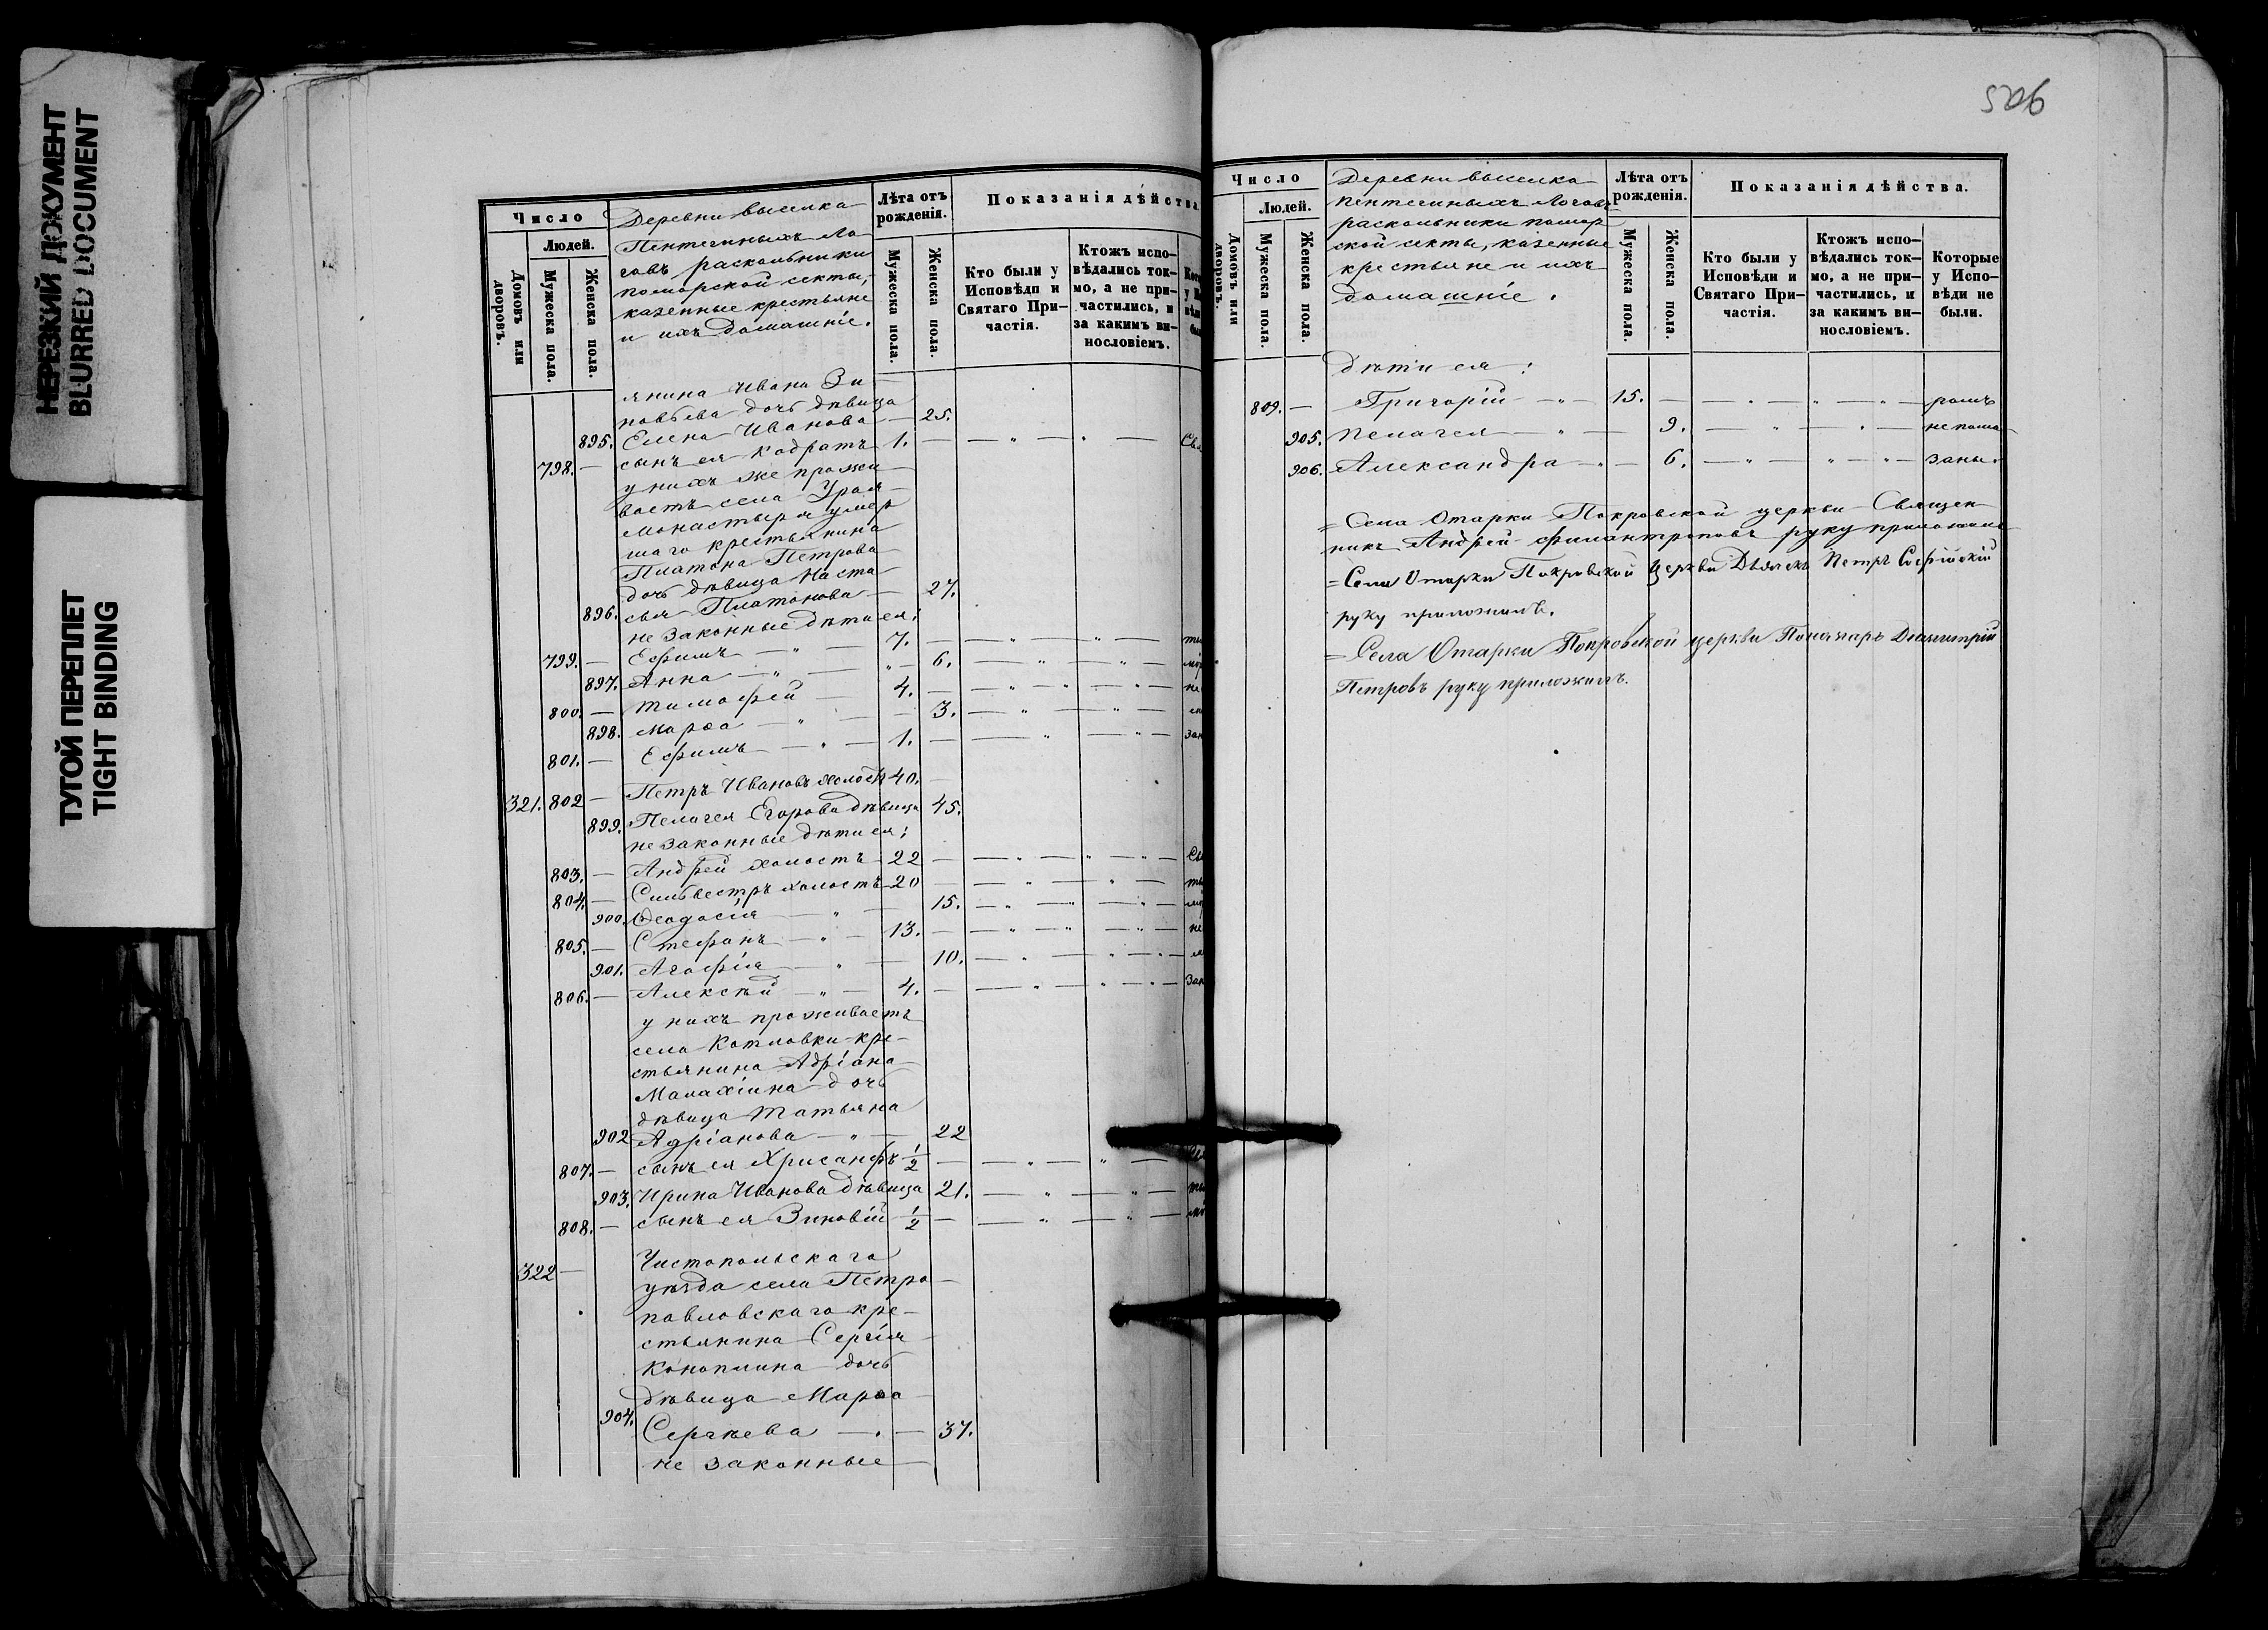 НЕРЕЗКИЙ ДОКУМЕНТ
BLURRED DOCUMENT
ТУГОЙ ПЕРЕПЛЕТ
TIGHT BINDING
Число
Людей.
Домовъ или дворовъ.
Мужеска пола.
Женска пола.
Деревни выселка
Пентелиныхъ Ло
говъ раскольники
поморской секты,
казенные крестьяне
и ихъ домашніе.
Лѣта отъ рожденія.
Мужеска пола.
Женска пола.
Показанія дѣйства
Кто были у Исповѣди и Святаго При–частія.
Ктожъ испо–вѣдались ток–мо, а не при–частились, и за какимъ ви–нословіемъ.
янина Ивана Зи
новьева дочь дѣвица
895. Елена Иванова — 25.
798. — сынъ ея Кодратъ 1. —
у нихъ же прожи
ваетъ села
монастыря умер
шаго крестьянина
Платона Петрова
дочь дѣвица Наста
896. сья Платонова — 27.
не законные дѣти ея:
799. — Ефимъ — " — 7. —
897. Анна — " — " 6. —
800. — Тимофей 4. —
898. Марѳа — " — 3. —
801. — Ефимъ — " — 1. —
321. 802 — Петръ Ивановъ холостъ 40. —
899. Пелагея Егорова дѣвица 45.
не законные дѣти ея:
803. — Андрей холостъ 22 —
804. — Сильвестръ холостъ 20 —
900. Ѳеодосія — " — 15. —
805. — Стефанъ — " — 13. —
901. Агафія — " — 10. —
806. — Алексѣй — " — 4. —
у нихъ проживаетъ
села Котловки кре–
стьянина Адріана
Малахіина дочь
дѣвица Татьяна
902 Адріанова — " — 22
807. — сынъ ея Хрисанфъ 1/2 —
903. Ирина Иванова дѣвица 21. —
808. — сынъ ея Зиновій 1/2 —
322 — Чистопольскаго
уѣзда села Петро–
павловскаго кре–
стьянина Сергія
Коноплина дочь
дѣвица Марѳа
904. Сергѣева — . — 37.
не законные
526
Число
Людей.
Домовъ или дворовъ.
Мужеска пола.
Женска пола.
Деревни выселка
Пентелиныхъ Логовъ
раскольники помор
ской секты, казенные
крестьяне и ихъ
домашніе.
Лѣта отъ рожденія.
Мужеска пола.
Женска пола.
Показанія дѣйства.
Кто были у Исповѣди и Святаго При–частія.
Ктожъ испо–вѣдались ток–мо, а не при–частились, и за какимъ ви–нословіемъ.
Которые у Испо–вѣди не были.
дѣти ея:
809. — Григорій — " — 15. —
905. Пелагея — " — 9. —
906. Александра — " — 6. — заны.
= Села Отарки Покровской церкви Священ
никъ Андрей Филантроповъ руку приложилъ
= Села Отарки Покровской Церкви Дьячекъ Петръ Софійскій
руку приложилъ.
= Села Отарки Покровской церкви Пономарь Димитрій
Петровъ руку приложилъ.